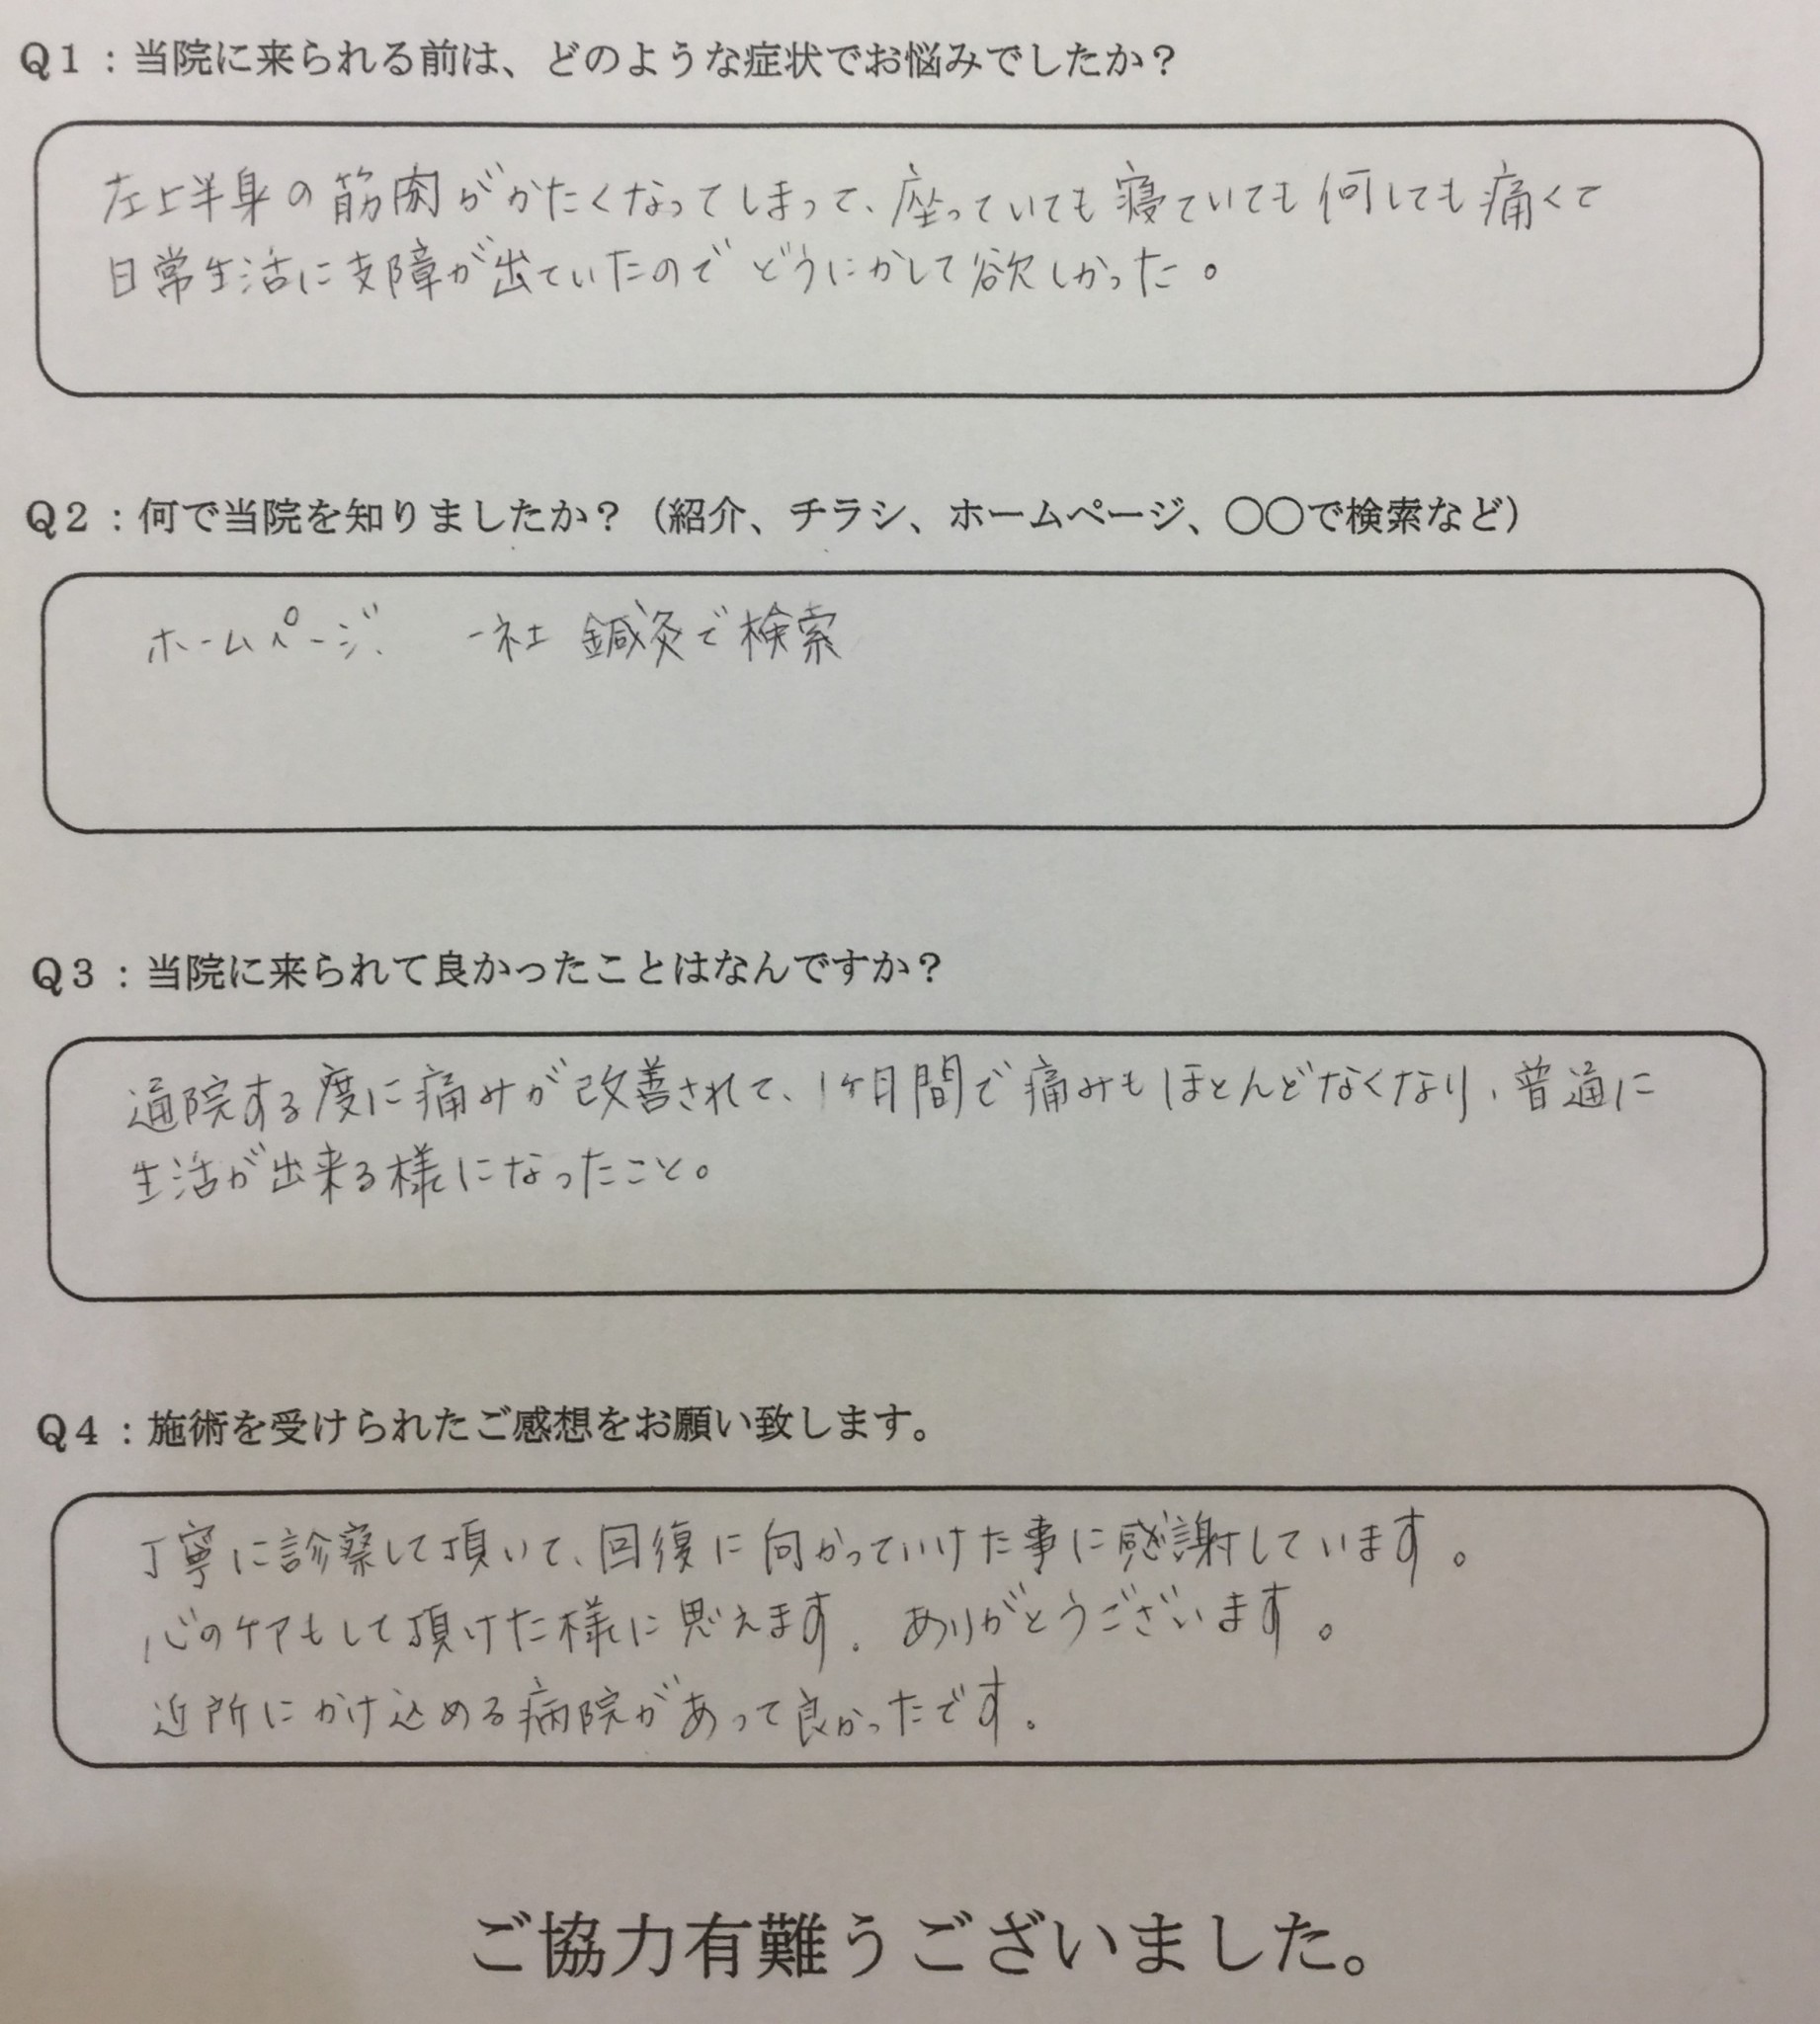 Q1：当院に来られる前は、どのような症状でお悩みでしたか？
左上半身の筋肉がかたくなってしまって、座っていても寝ていても何しても痛くて
日常生活に支障が出ていたのでどうにかして欲しかった。
Q2：何で当院を知りましたか？（紹介、チラシ、ホームページ、〇〇で検索など）
ホームページ、 一社 鍼灸で検索
Q3：当院に来られて良かったことはなんですか？
通院する度に痛みが改善されて、1ヶ月間で痛みもほとんどなくなり、普通に
生活が出来る様になったこと。
Q4：施術を受けられたご感想をお願い致します。
丁寧に診察して頂いて、回復に向かっていけた事に感謝しています。
心のケアもして頂けた様に思えます。ありがとうございます。
近所にかけ込める病院があって良かったです。
ご協力有難うございました。